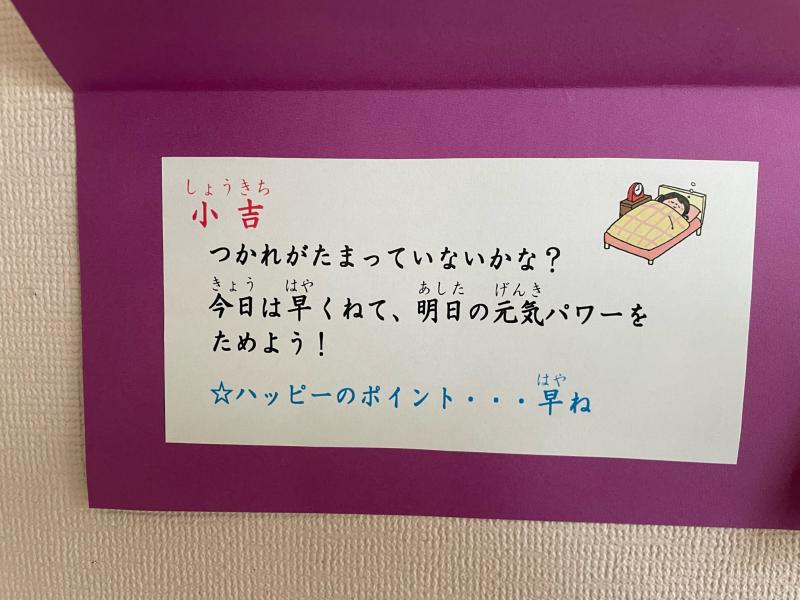 しょうきち
小吉
つかれがたまっていないかな？
きょう はや あした げんき
今日は早くねて、明日の元気パワーを
ためよう！
はや
☆ハッピーのポイント・・・早ね